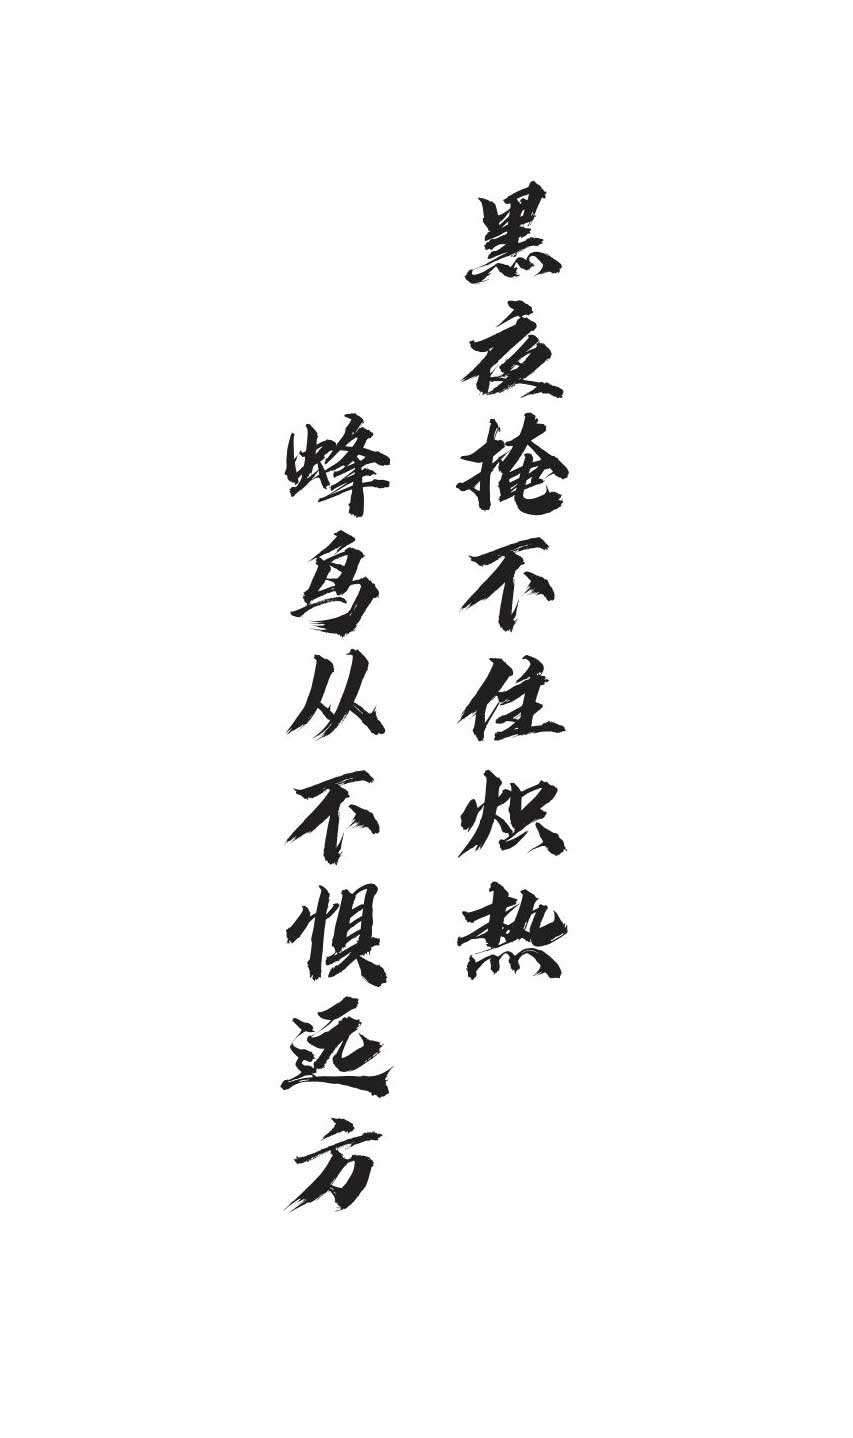 黑夜掩不住炽热
蜂鸟从不惧远方